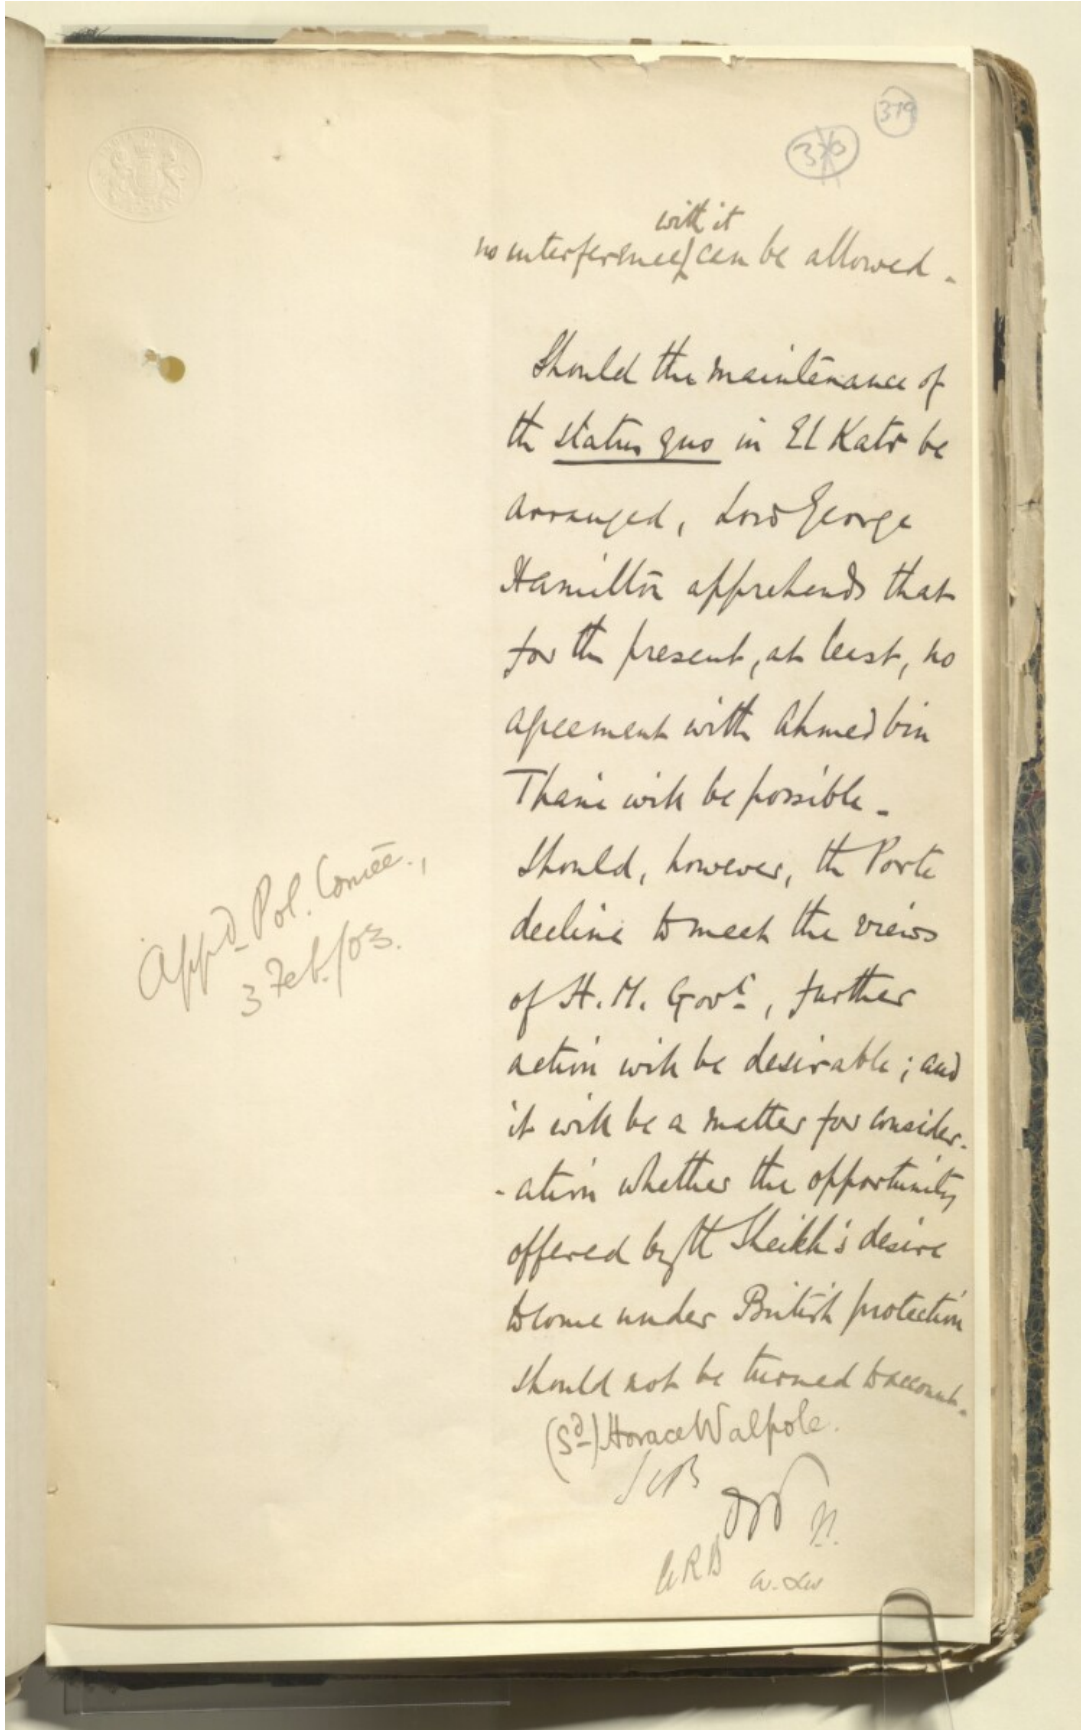 379
with it
no interference can be allowed.
Should the maintenance of
the status quo in El Katr be
arranged, Lord George
Hamilton apprehends that
for the present, at least, no
agreement with Ahmed bin
Thani will be possible.
Should, however, the Porte
decline to meet the views
of H.M. Govt., further
action will be desirable; and
it will be a matter for consider-
-ation whether the opportunity
offered by the Sheikh's desire
to come under British protection
should not be turned to account.
App'd Pol. Comee.,
3 Feb./03.
(Sd) Horace Walpole.